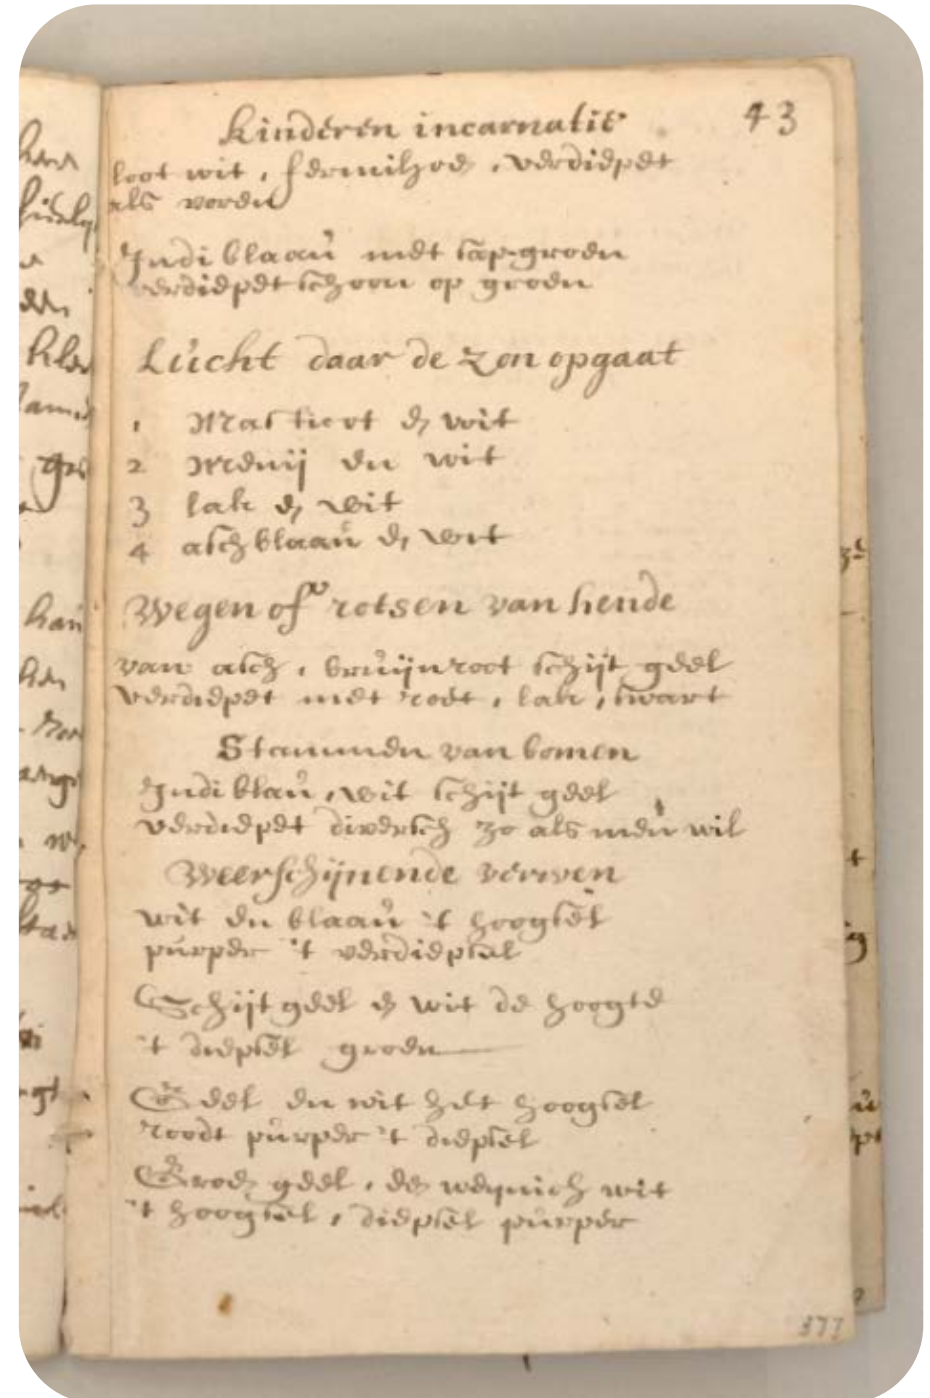 kinderen incarnatie
43
loot wit, fermilyoen, verdiepet
als voren
Indi blaaú met sap-groen
verdiepet schoon op groen
Lúcht daar de zon opgaat
1 Masticot en wit
2 Menij en wit
3 lak en wit
4 aschblaaú en wit
Wegen of rotsen van
van asch, brúijnroot schijt geel
verdiepet met roet, lak, swart
Stammen van bomen
Indi blaú, wit schijt geel
verdiepet diversch zo als men wil
Weerschijnende verwen
wit en blaaú 't hoogsel
púrper 't verdiepsel
Schijt geel en wit de hoogte
't diepsel groen
Geel en wit het hoogsel
roodt púrper 't diepsel
Groen geel, en weynich wit
't hoogsel, diepsel púrper
377